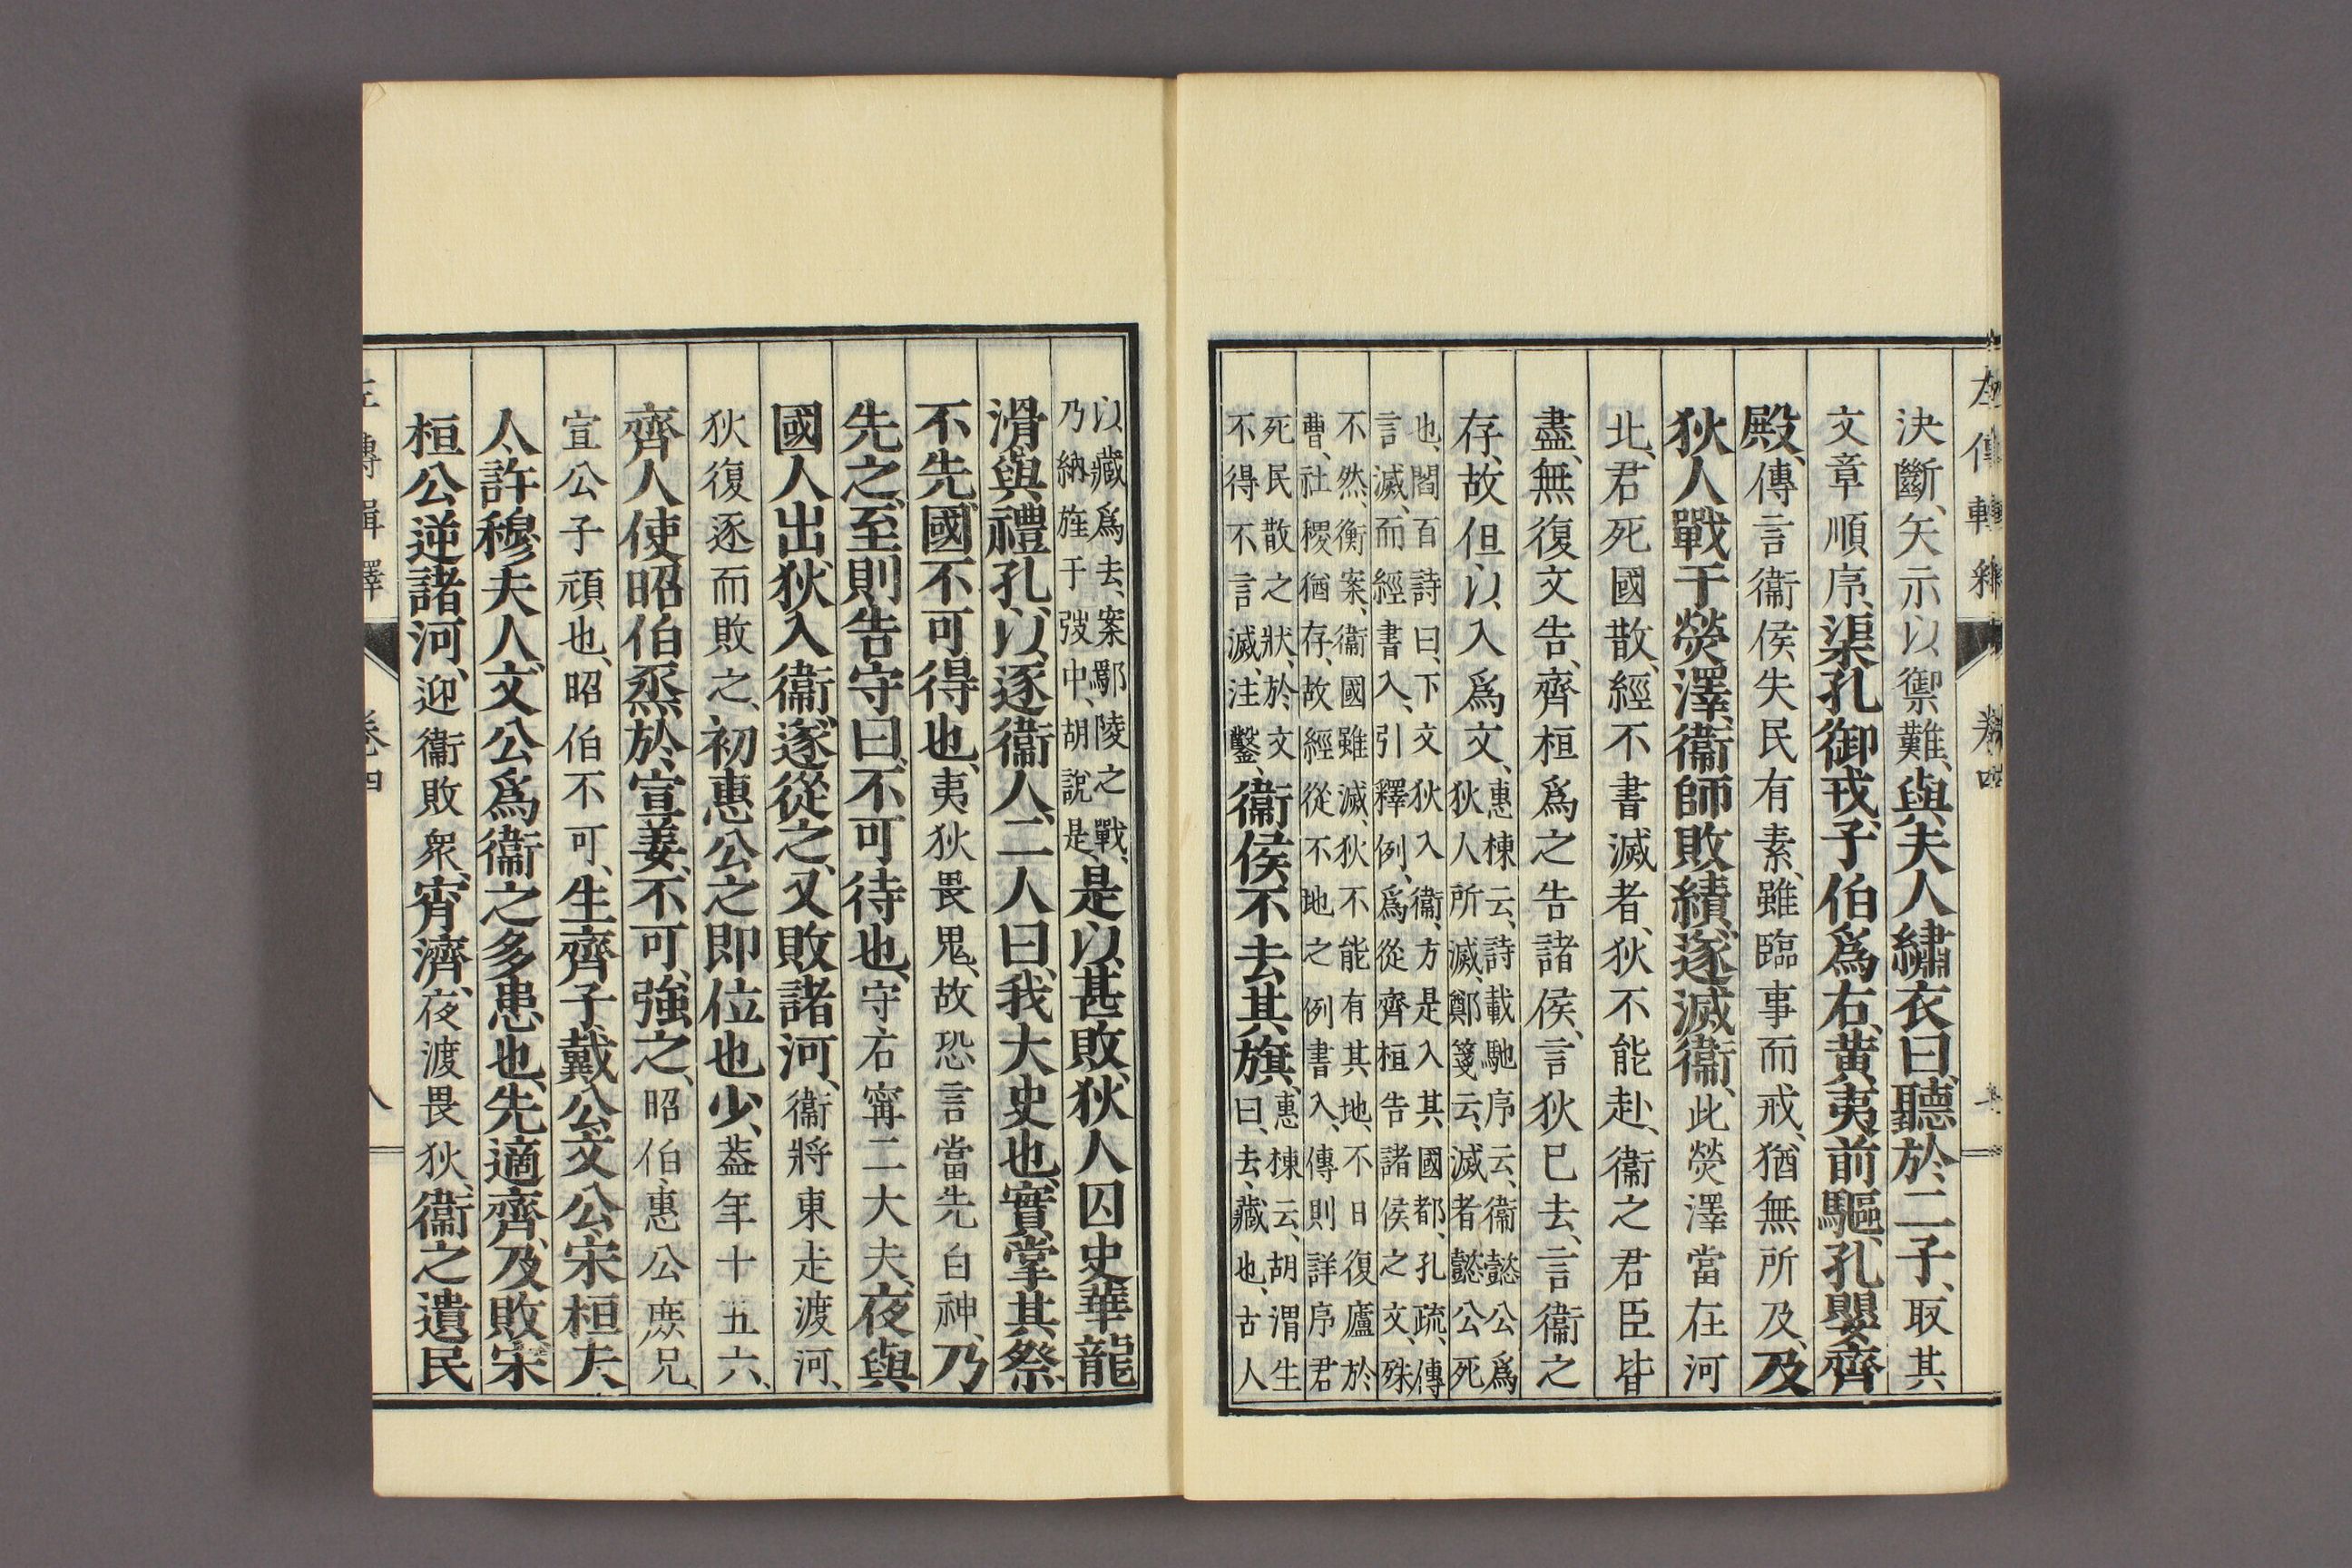 決斷、矢示以禦難、與夫人繡衣曰、聽於二子、取其
文章順序、渠孔御戎、子伯爲右、黃夷前驅、孔嬰齊
殿、傳言衞侯失民有素、雖臨事而戒、猶無所及、及
狄人戰于熒澤、衞師敗績、遂滅衞、此熒澤當在河
北、君死國散、經不書滅者、狄不能赴、衞之君臣皆
盡、無復文告、齊桓爲之告諸侯、言狄已去、言衞之
存、故但以入爲文、惠棟云、詩載馳序云、衞懿公爲
狄人所滅、鄭箋云、滅者懿公死
也、閻百詩曰、下文狄入衞、方是入其國都、孔疏、傳
言滅、而經書入、引釋例、爲從齊桓告諸侯之文、殊
不然、衡案、衞國雖滅、狄不能有其地、不日復廬於
曹、社稷猶存、故經從不地之例書入、傳則詳序君
死民散之狀、於文
不得不言滅、注鑿、衞侯不去其旗、惠棟云、胡渭生
曰、去、藏也、古人
以藏爲去、案鄢陵之戰、
乃納旌于弢中、胡說是、是以甚敗、狄人囚史華龍
滑與禮孔、以逐衞人、二人曰、我大史也、實掌其祭
不先、國不可得也、夷狄畏鬼、故恐言當先白神、乃
先之、至則告守曰、不可待也、守石甯二大夫、夜與
國人出、狄入衞、遂從之、又敗諸河、衞將東走渡河、
狄復逐而敗之、初惠公之即位也少、蓋年十五六、
齊人使昭伯烝於宣姜、不可、強之、昭伯、惠公庶兄、
宣公子頑也、昭伯不可、生齊子戴公文公宋桓夫
人、許穆夫人、文公爲衞之多患也、先適齊、及敗、宋
桓公逆諸河、迎衞敗衆、宵濟、夜渡畏狄、衞之遺民
卷四
八